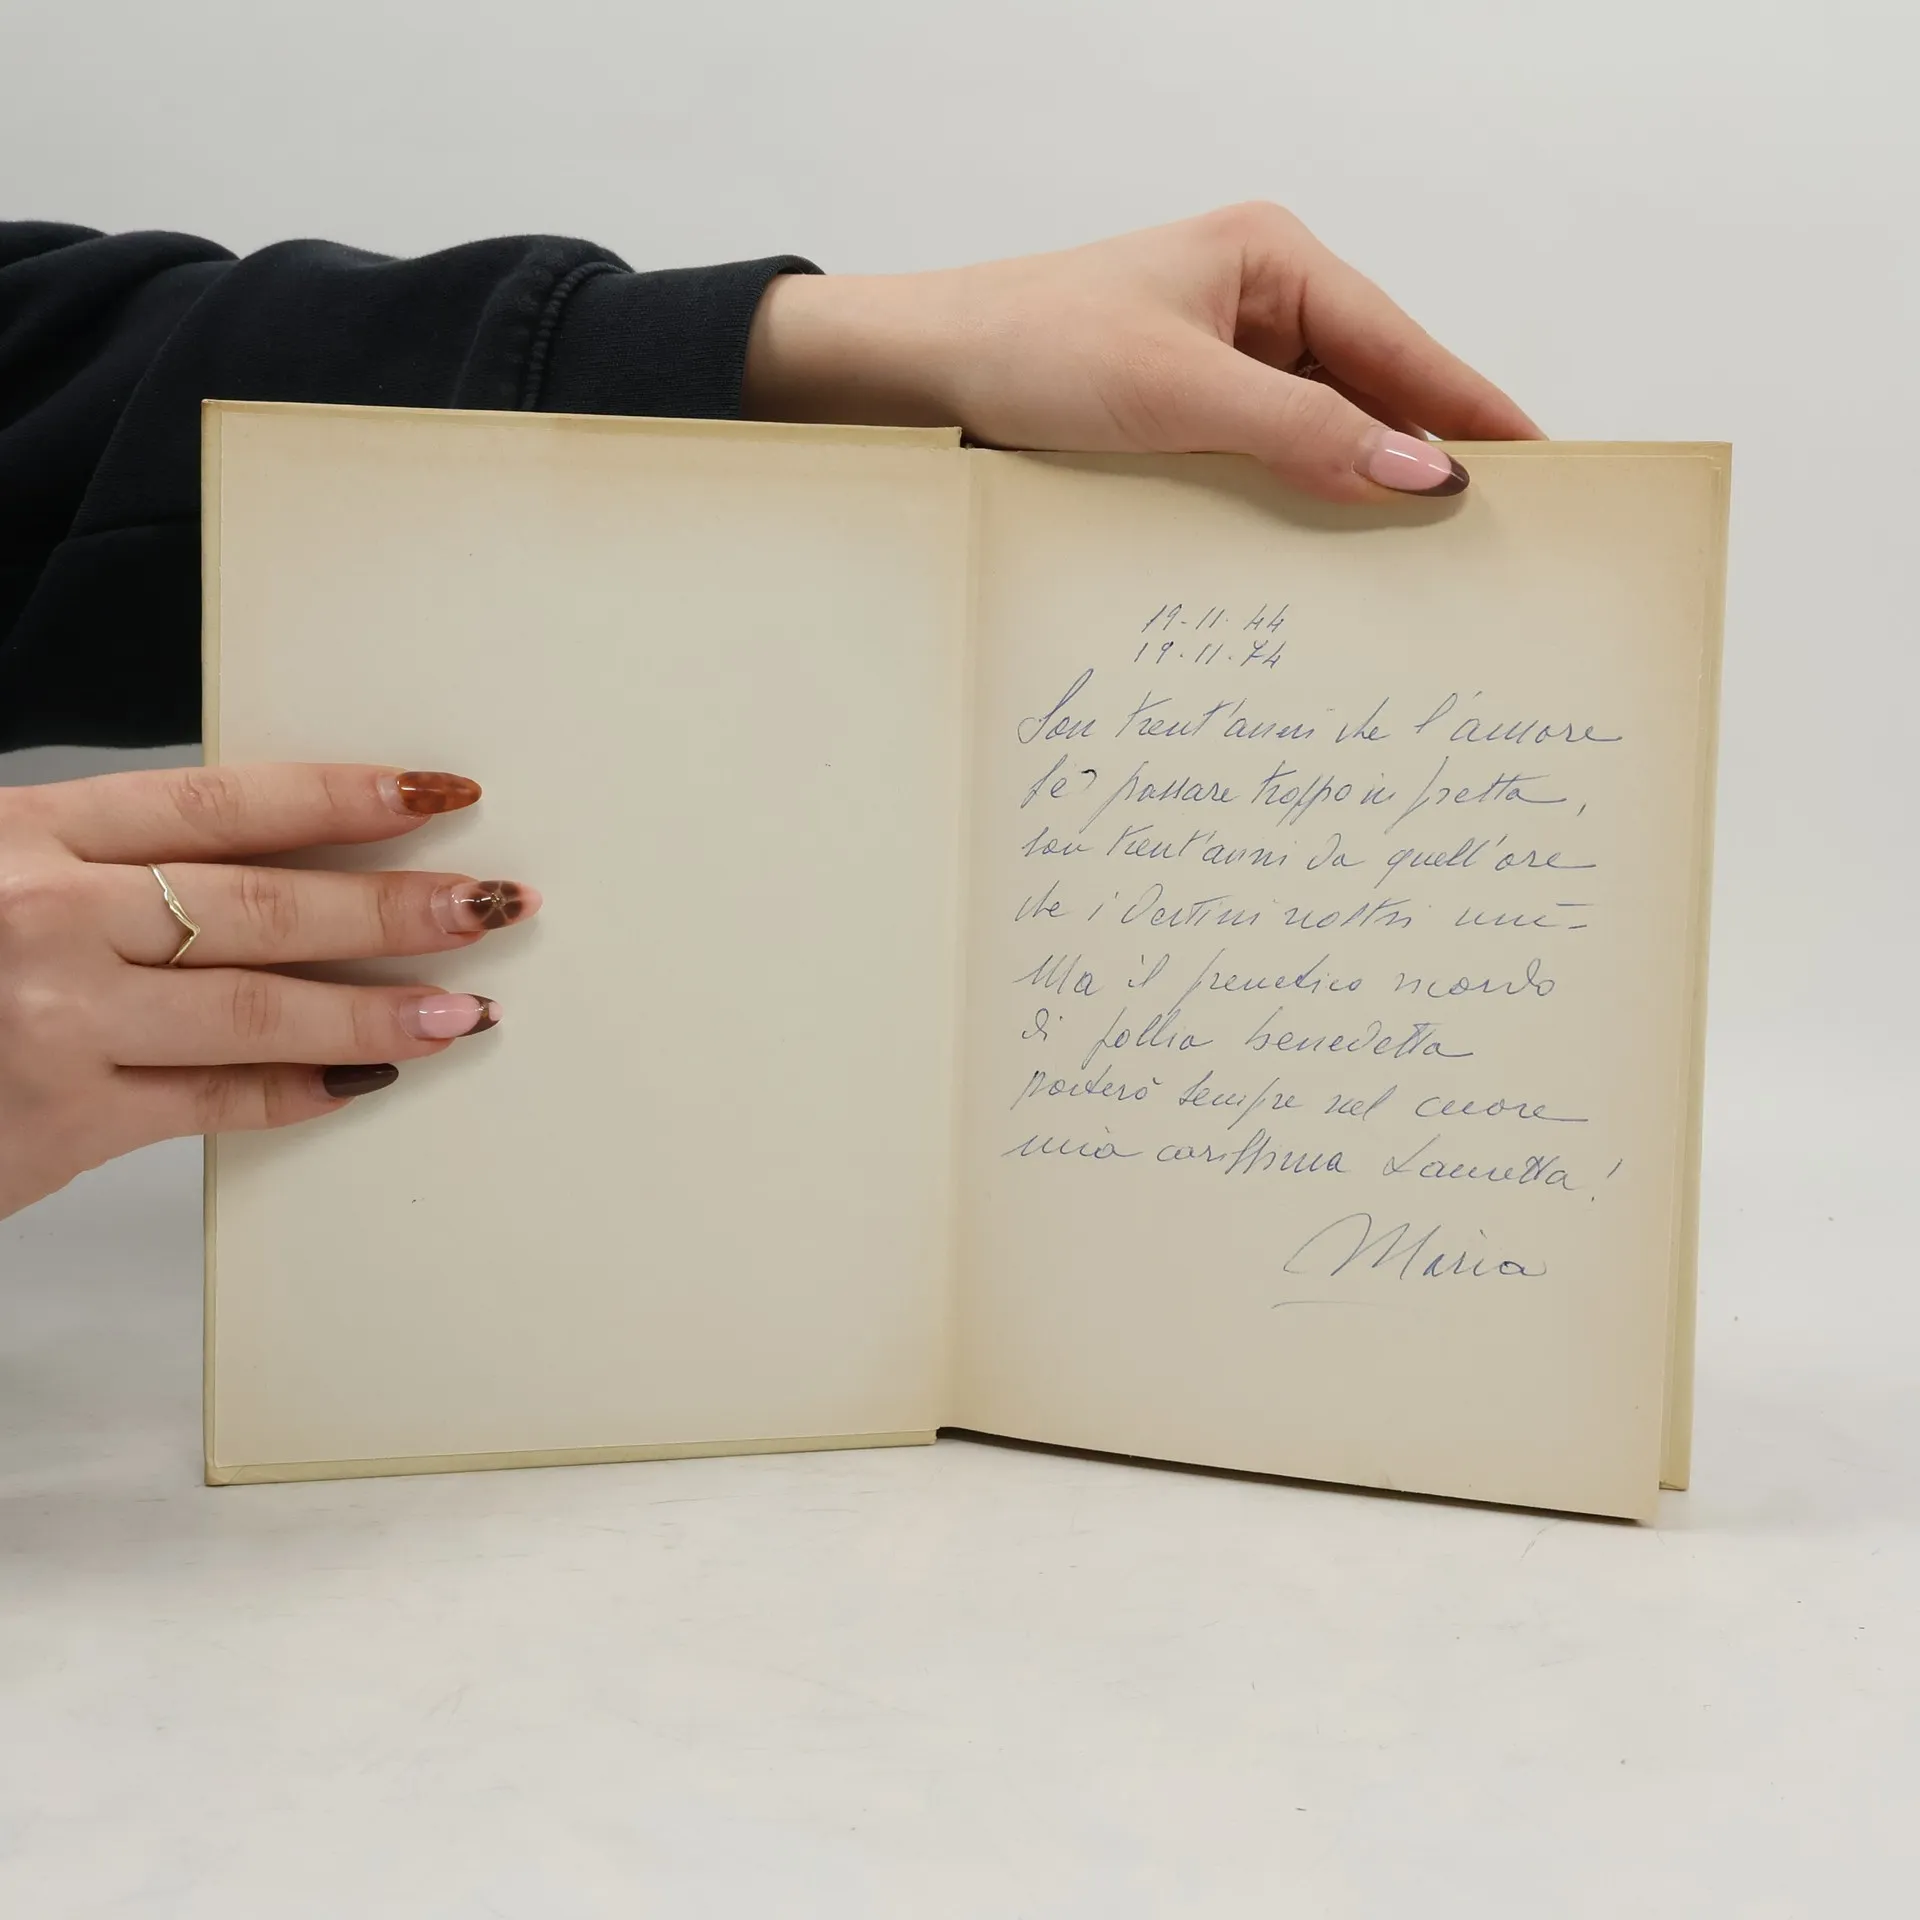 19-11-44
19.11.74
Son trent'anni che l'amore
fè passare troppo in fretta,
son trent'anni da quell'ore
che i destini nostri unì -
Ma il frenetico mondo
di follia benedetta
porterò sempre nel cuore
mia carissima Lauretta!
Maria